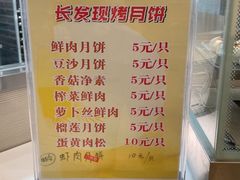 长发现烤月饼
鲜肉月饼 5元/只
豆沙月饼 5元/只
香菇净素 5元/只
榨菜鲜肉 5元/只
萝卜丝鲜肉 5元/只
榴莲月饼 5元/只
蛋黄肉松 10元/只
虾肉 10元/只